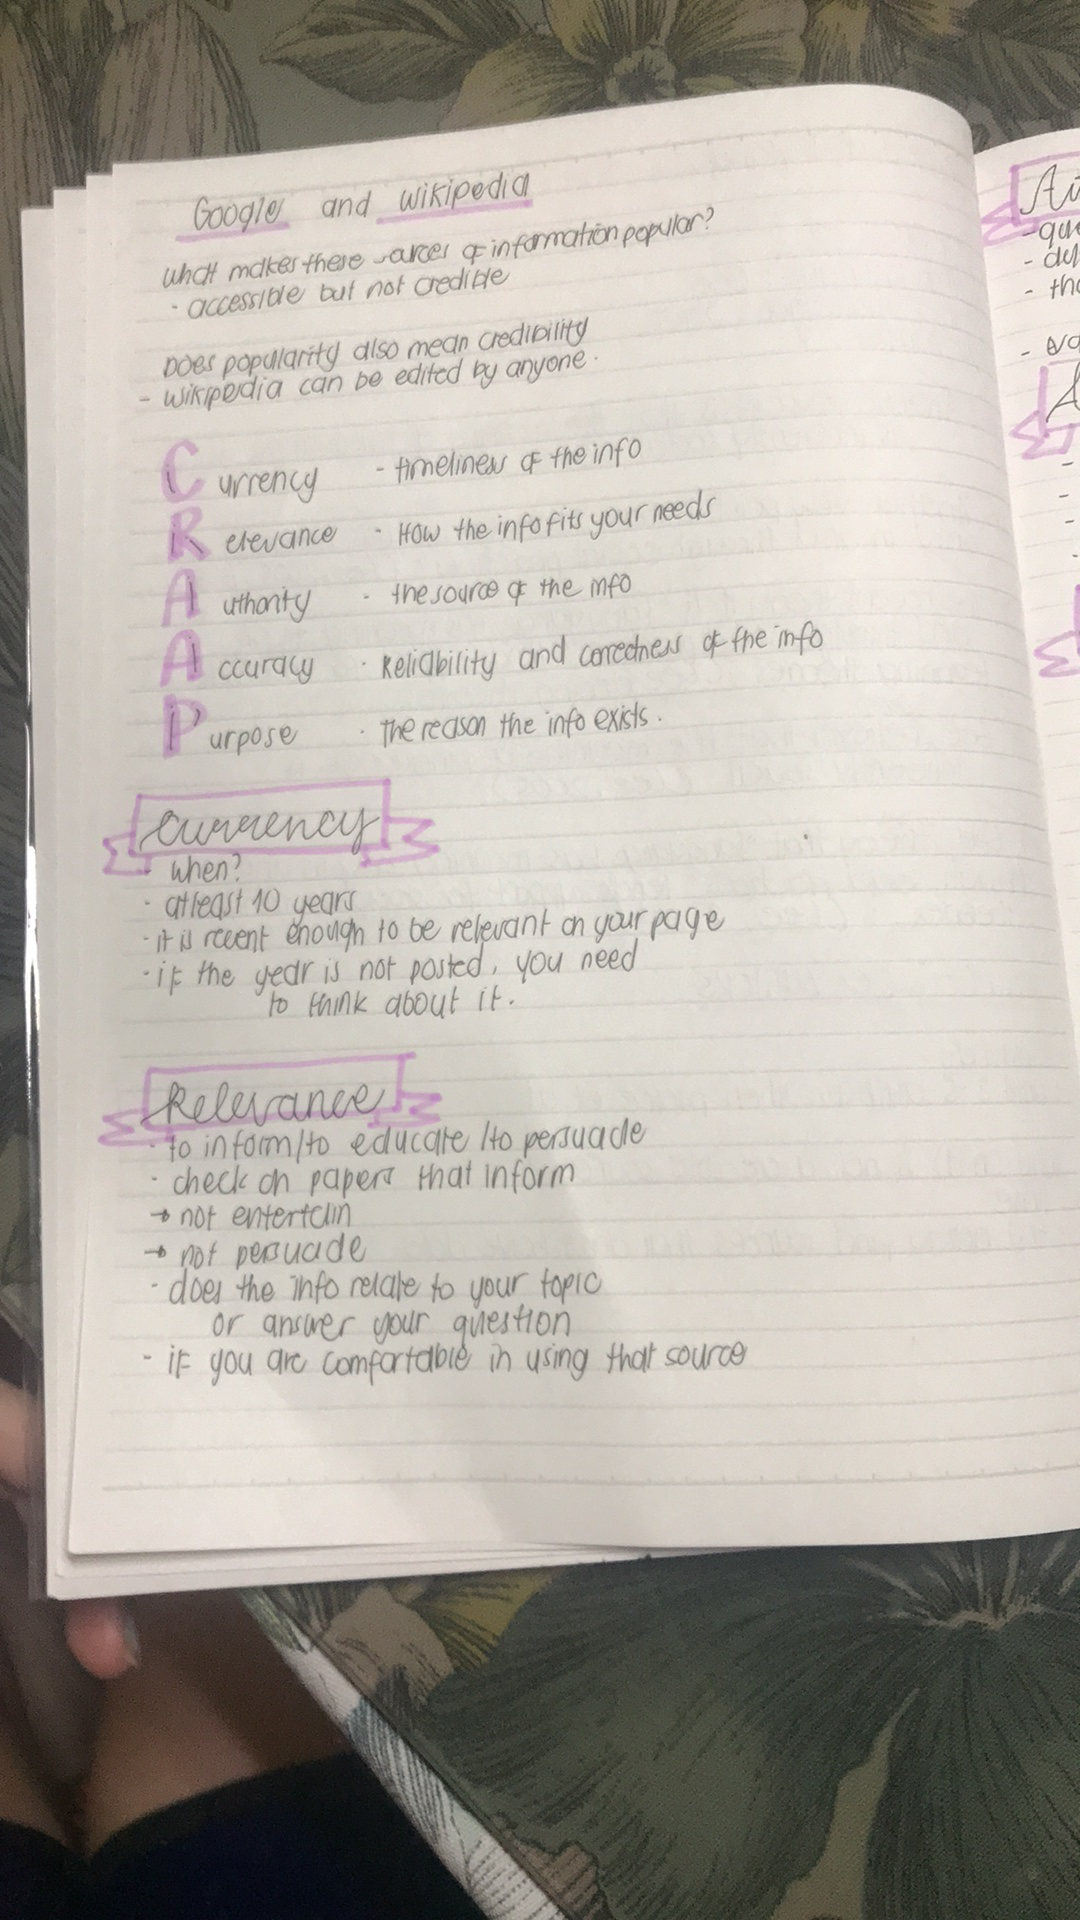 Google and Wikipedia
what makes these sources of information popular?
- accessible but not credible
Does popularity also mean credibility
- Wikipedia can be edited by anyone.
Currency - timeliness of the info
Relevance - How the info fits your needs
Authority - the source of the info
Accuracy - Reliability and correctness of the info
Purpose - The reason the info exists.
Currency
- when?
- atleast 10 years
- it is recent enough to be relevant on your page
- if the year is not posted, you need
to think about it.
Relevance
- to inform/to educate /to persuade
- check on papers that inform
→ not entertain
→ not persuade
- does the info relate to your topic
or answer your question
- if you are comfortable in using that source